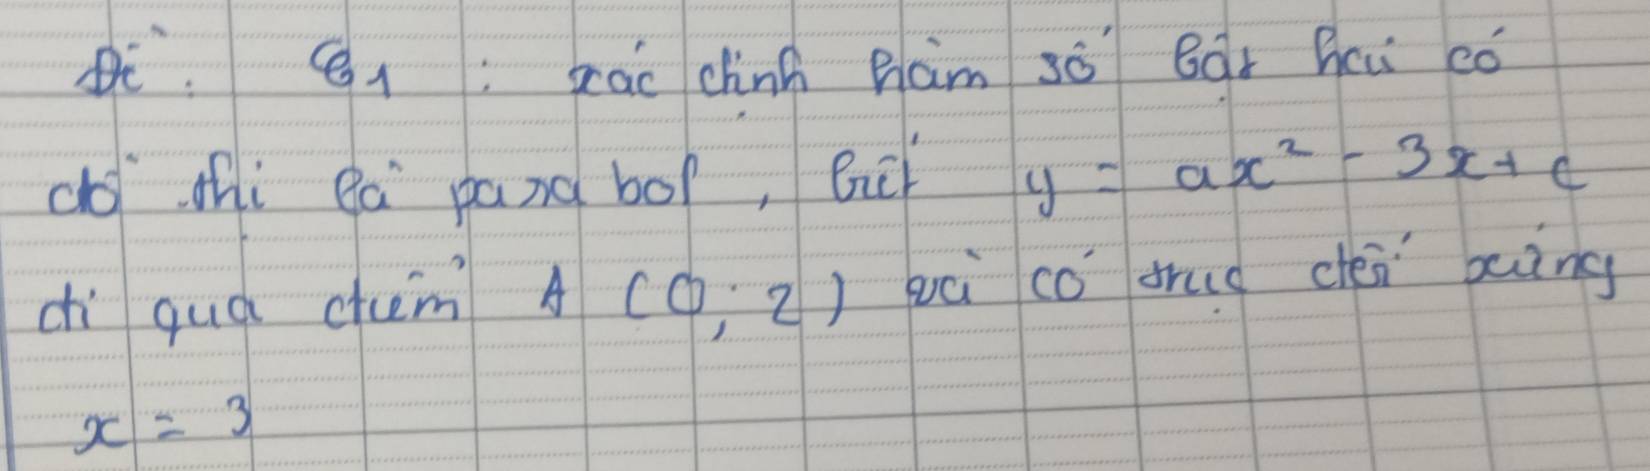 Đề : C1 : xác định hàm số bậc hai có
đồ thị là parabol, biết y = ax² - 3x + c
đi qua điểm A (0; 2) và có trục đối xứng
x = 3